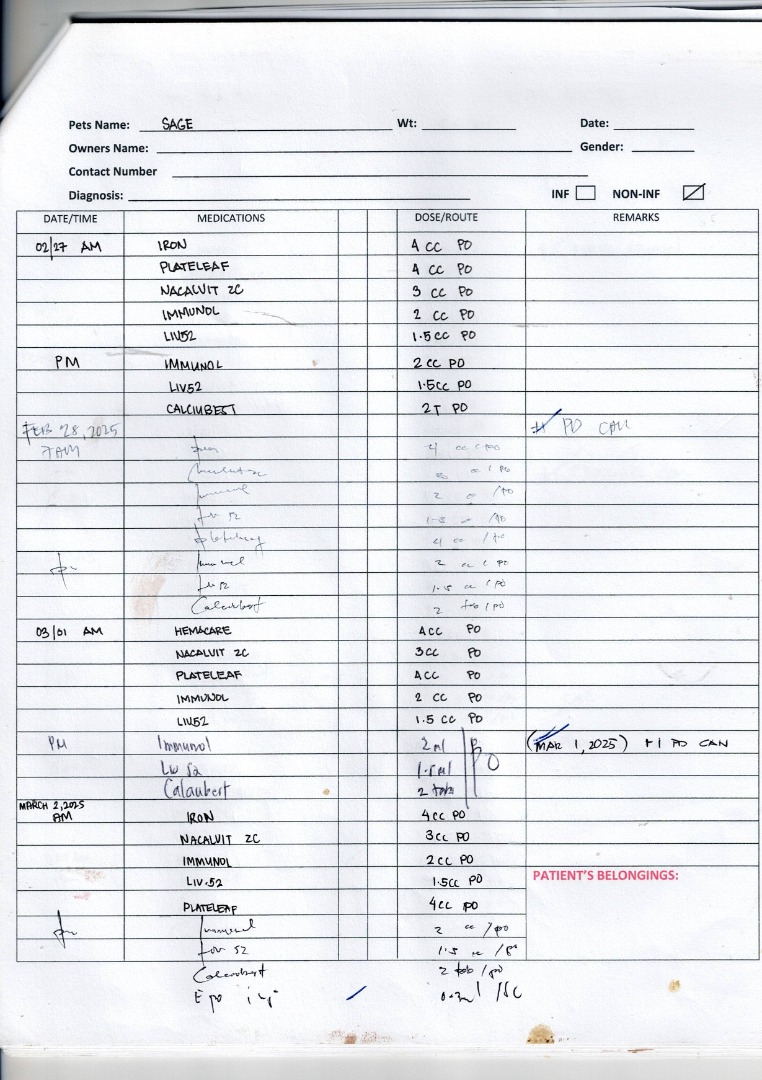 Pets Name: SAGE Wt: Date:
Owners Name: Gender:
Contact Number
Diagnosis: INF NON-INF
DATE/TIME MEDICATIONS DOSE/ROUTE REMARKS
02/27 AM IRON 4 CC PO
PLATELEAF 4 CC PO
NACALVIT 2C 3 CC PO
IMMUNOL 2 CC PO
LIV52 1.5 CC PO
PM IMMUNOL 2 CC PO
LIV52 1.5CC PO
CALCIUBEST 2T PO
FEB 28, 2025 PO CAN
7AM 4 cc / po
cc / po
2 /po
52 1.5 /po
4 cc /po
2 cc / po
52 1.5 cc / po
2 tab / po
03/01 AM HEMACARE 4CC PO
NACALVIT 2C 3CC PO
PLATELEAF 4CC PO
IMMUNOL 2 CC PO
LIV52 1.5 CC PO
PM Immunol 2ml PO (MAR 1, 2025) +1 PD CAN
Liv 52 1.5ml
Calciubest 2 tab
MARCH 2, 2025
AM IRON 4CC PO
NACALVIT 2C 3CC PO
IMMUNOL 2CC PO
LIV.52 1.5CC PO PATIENT'S BELONGINGS:
PLATELEAF 4CC PO
2 cc /po
52 1.5 cc /po
Calciubest 2 tab / po
Epo inj 0.3ml /SC